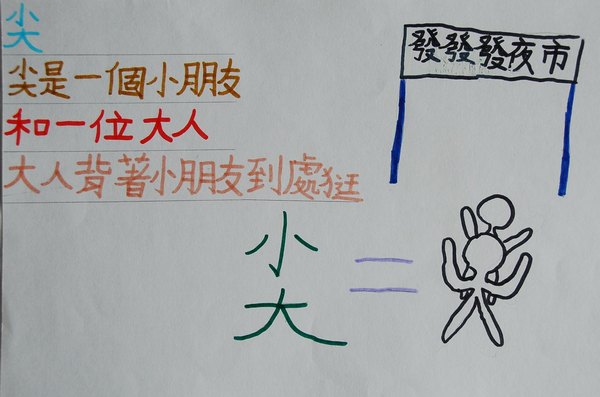 尖
尖是一個小朋友
和一位大人
大人背著小朋友到處狂
發發發夜市
尖 =